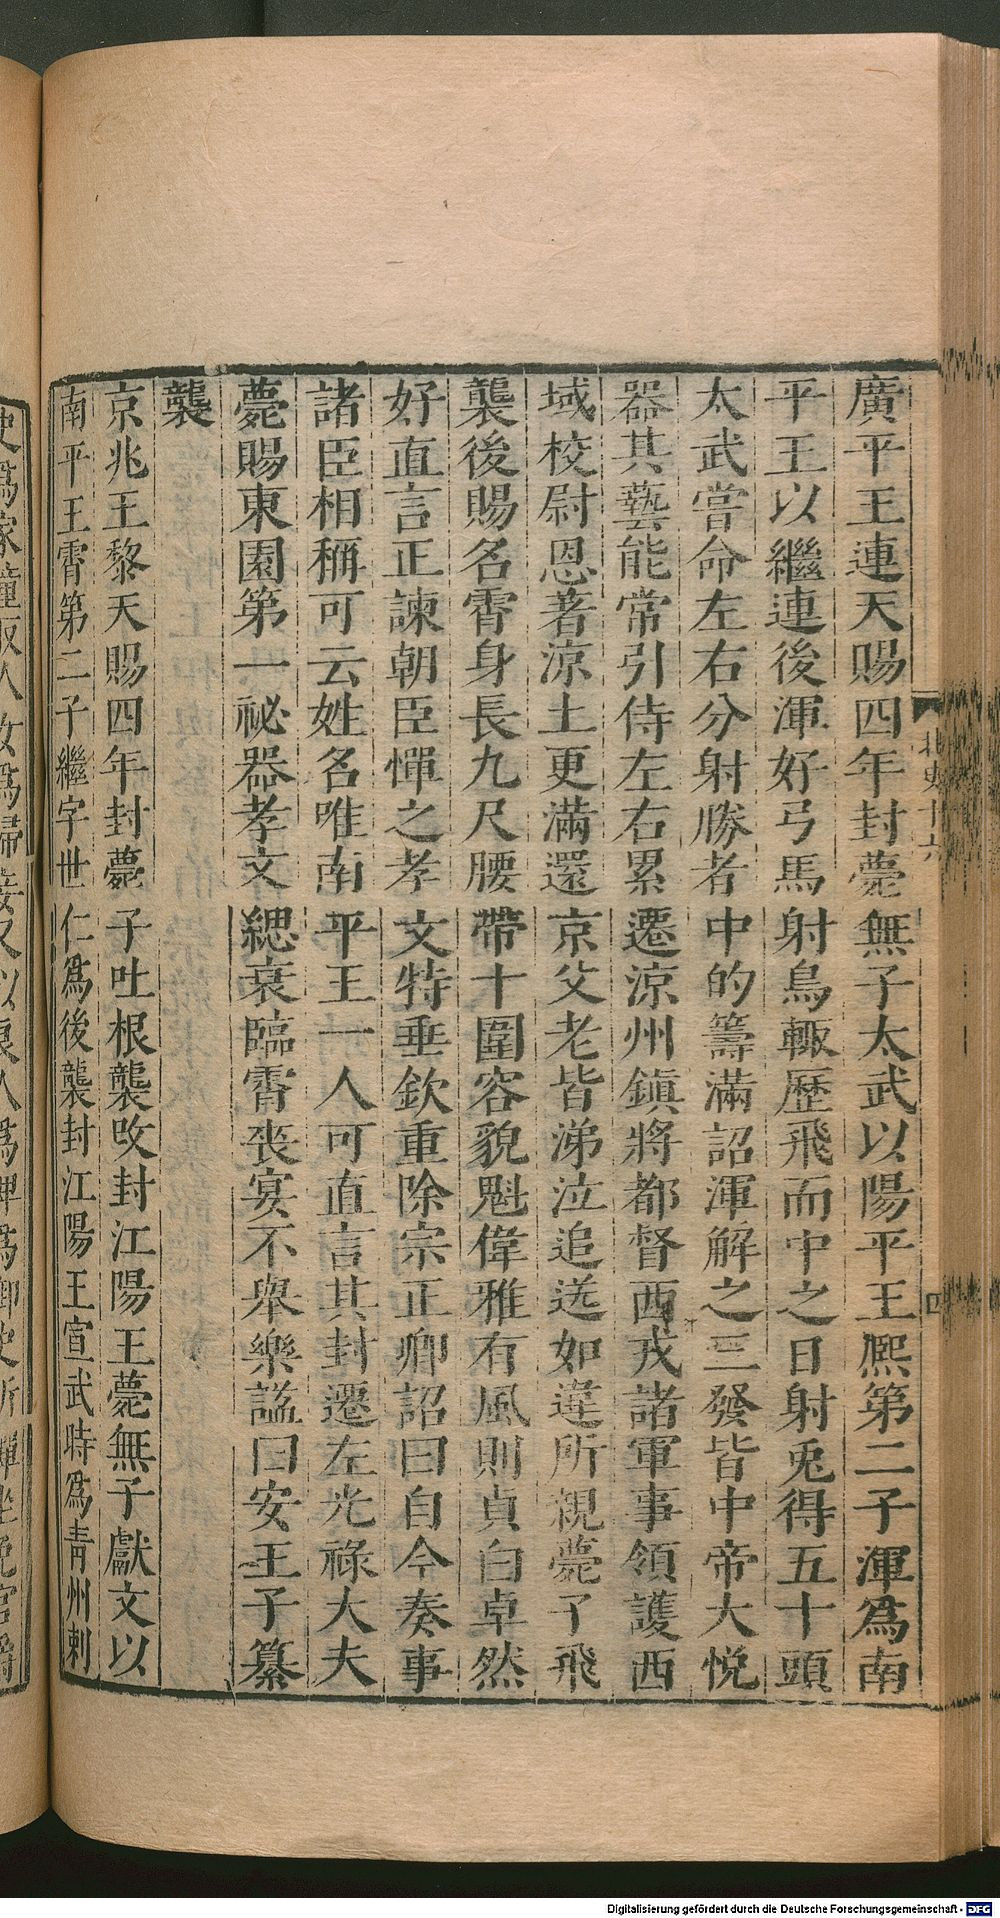 廣平王連天賜四年封薨無子太武以陽平王熙第二子渾爲南
平王以繼連後渾好弓馬射鳥輒歷飛而中之日射兎得五十頭
太武嘗命左右分射勝者中的籌滿詔渾解之三發皆中帝大悅
器其藝能常引侍左右累遷涼州鎮將都督西戎諸軍事領護西
域校尉恩著涼土更滿還京父老皆涕泣追送如違所親薨子飛
襲後賜名霄身長九尺腰帶十圍容貌魁偉雅有風則貞白卓然
好直言正諫朝臣憚之孝文特垂欽重除宗正卿詔曰自今奏事
諸臣相稱可云姓名唯南平王一人可直言其封遷左光祿大夫
薨賜東園第一祕器孝文緦衰臨霄喪宴不舉樂謚曰安王子纂
襲
京兆王黎天賜四年封薨子吐根襲改封江陽王薨無子獻文以
南平王霄第二子繼字世仁爲後襲封江陽王宣武時爲靑州刺
北史十六
四
Digitalisierung gefördert durch die Deutsche Forschungsgemeinschaft - DFG